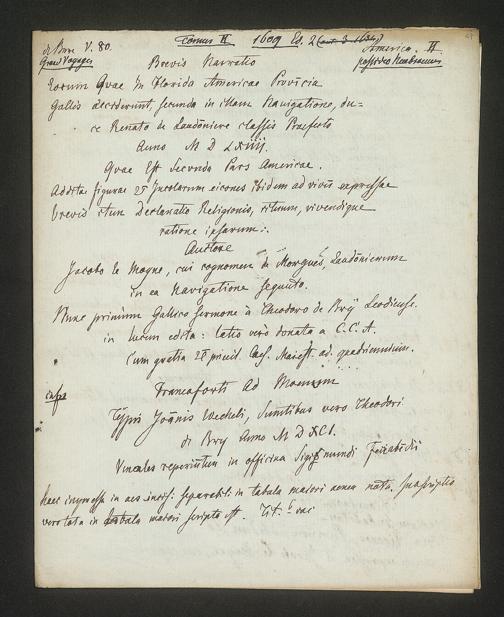 de Bure V. 80. Tomus II 1609 Ed. 2 America. II.
Grand Voyages
Brevis Narratio
Eorum Quae in Florida Americae Provicia
Gallis acciderunt, secunda in illam Navigatione, du-
ce Renato de Laudoniere classis Praefecto
Anno M D LXIIII.
Quae Est Secunda Pars Americae.
Additae figurae et Incolarum eicones ibidem ad vivu expressae
brevis etiam Declaratio Religionis, rituum, vivendique
ratione ipsarum.
Auctore
Jacobo le Moyne, cui cognomen de Morgues, Laudonierum
in ea Navigatione sequuto.
Nunc primum Gallico sermone à Theodoro de Bry Leodiense
in lucem edita: latio verò donata a C. C. A.
Cum gratia et privil. Caes. Maiest. ad quadriennium.
Francoforti Ad Moenum
Typis Joannis Wecheli, Sumtibus vero Theodori
de Bry Anno M D XCI.
Venales reperiuntur in officina Sigismundi Feirabedii
haec impressa in aes incis. separabili in tabula maiori aenea
vero tota in tabula maiori scripta est.